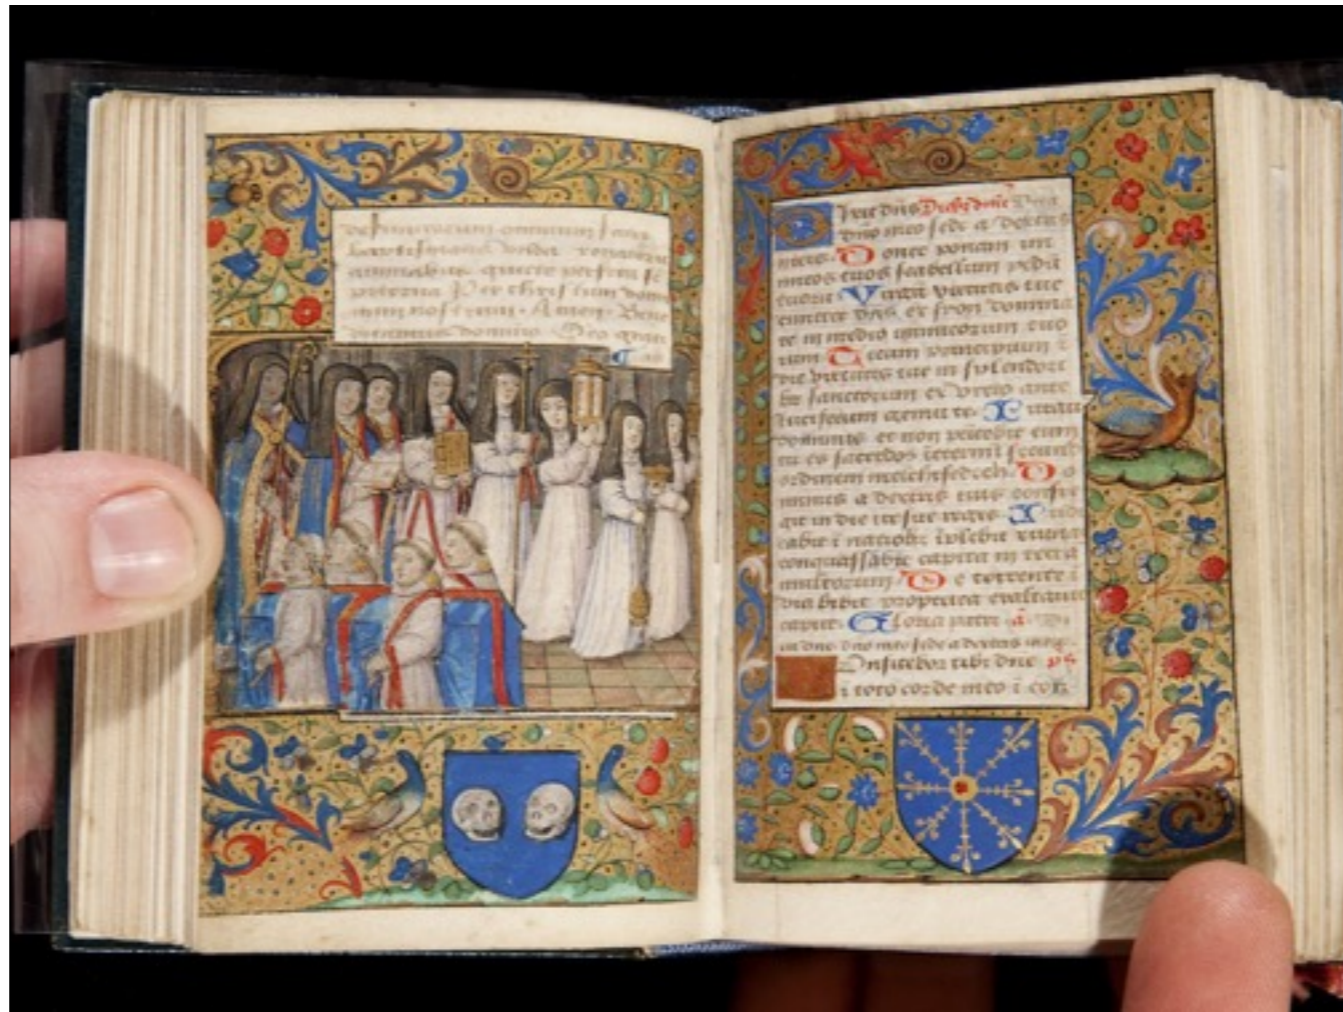 defunctorum omnium
unda
animabus quiete perfrui se
piterna Per christum domi
num nostrum · Amen · Bene
dicamus domino · Deo
Dixit dns
dno meo sede a dextris
meis · Donec ponam ini
micos tuos scabellum pedu
tuoru Virga virtutis tue
emittet dns ex syon domina
re in medio inimicorum tuo
rum Tecum principium i
die virtutis tue in splendori
b sanctorum ex utero ante
luciferum genui te · Iurauit
dominus et non penitebit eum
tu es sacerdos ieternu secund
ordinem melchisedech · Do
minus a dextris tuis confre
git in die ire sue reges · Iudi
cabit i natiob iplebit ruinas
conquassabit capita in terra
multorum De torrente i
via bibet propterea exaltauit
caput · Gloria patri · a
dno meo sede a dextris
Onfitebor tibi dne ps
i toto corde meo i con